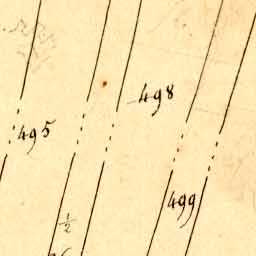 498
495
499
1/2